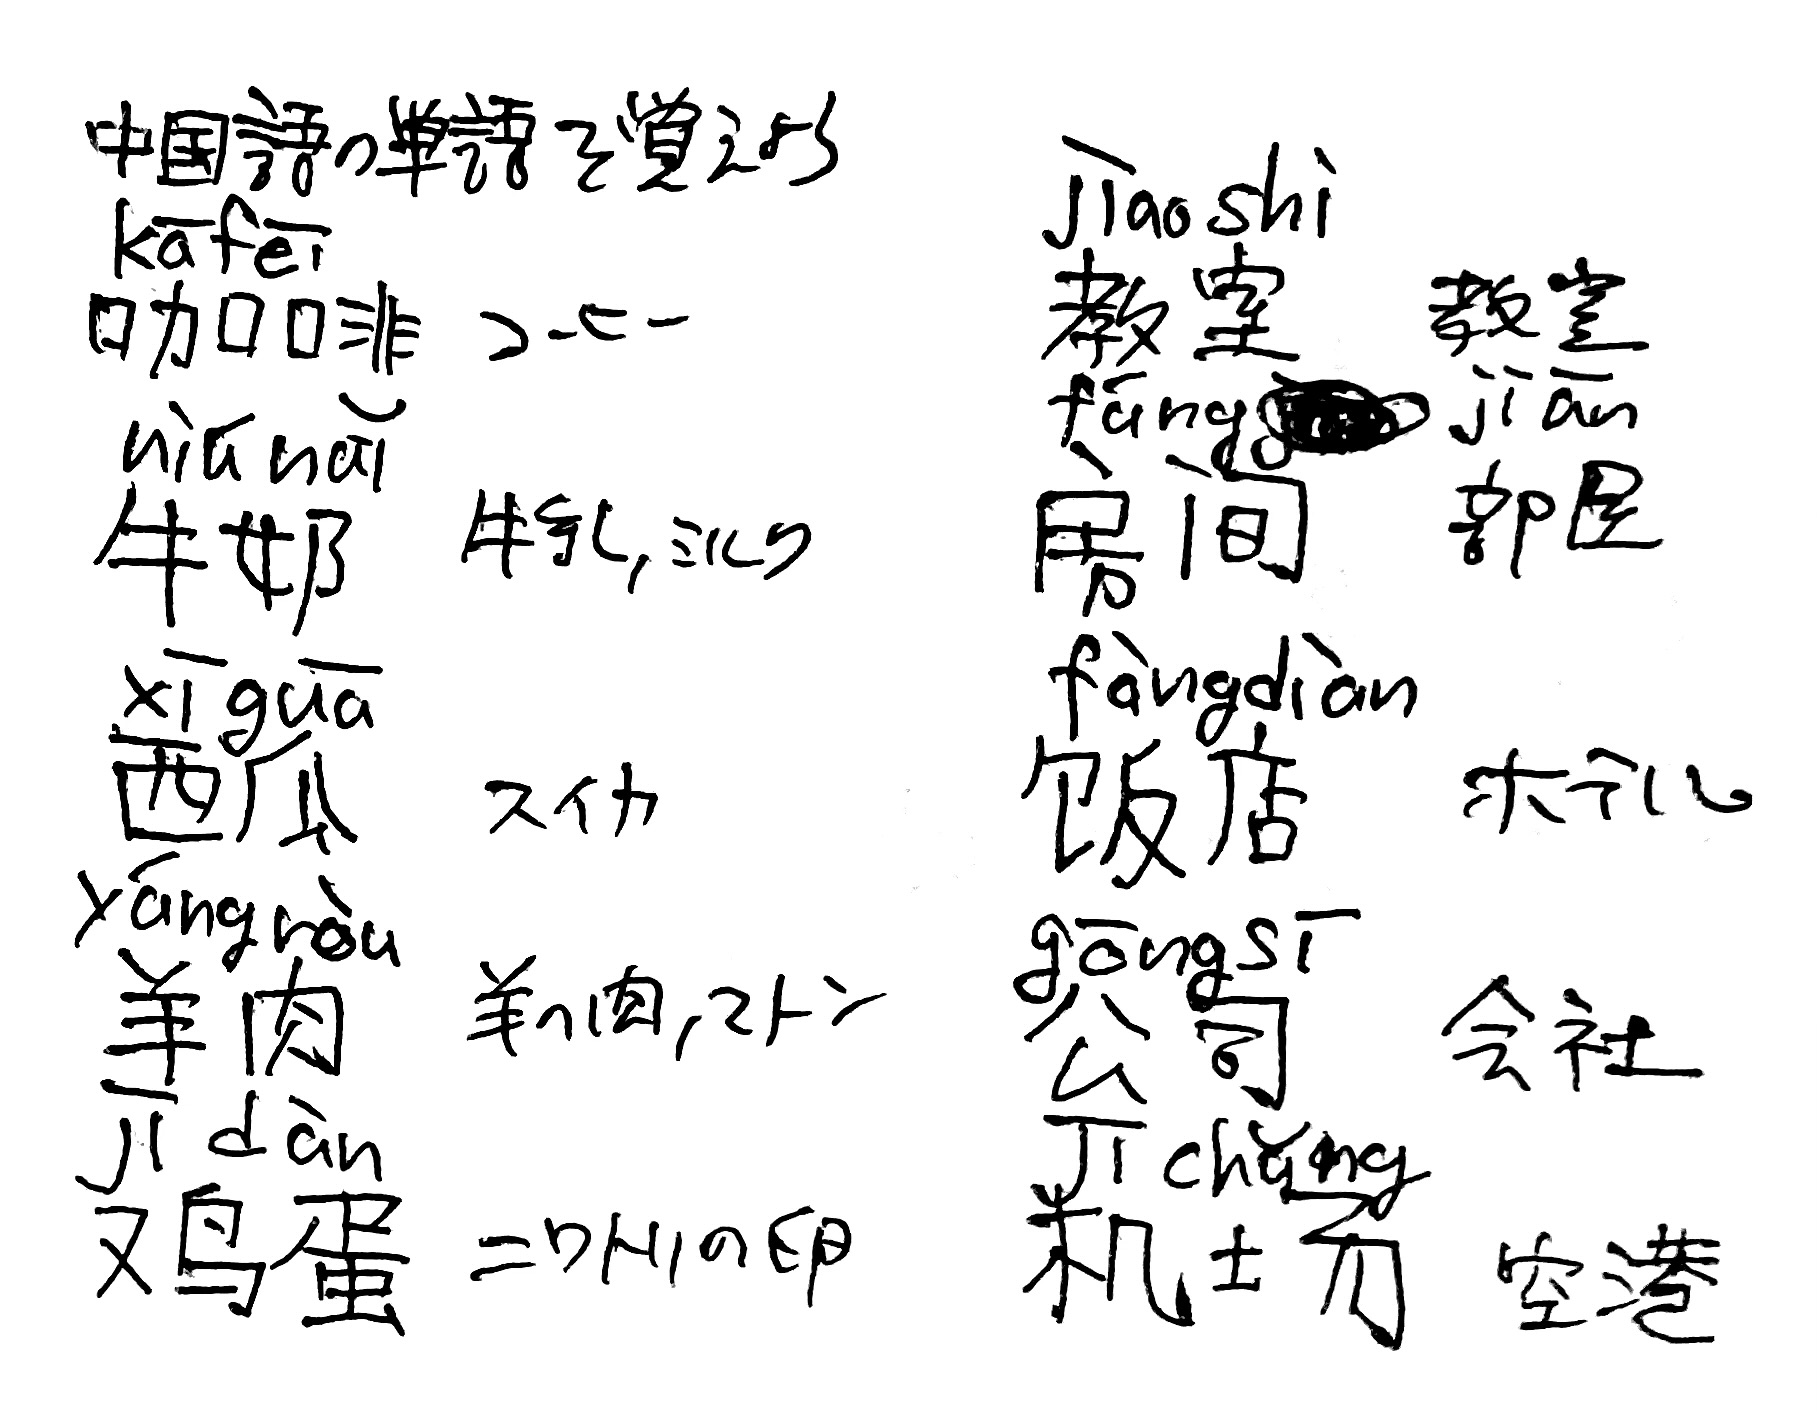 中国語の単語を覚えよう
kāfēi
咖啡 コーヒー
niúnǎi
牛奶 牛乳,ミルク
xīguā
西瓜 スイカ
yángròu
羊肉 羊の肉,マトン
jīdàn
鸡蛋 ニワトリの卵
jiàoshì
教室 教室
fáng jiān
房间 部屋
fàngdiàn
饭店 ホテル
gōngsī
公司 会社
jīchǎng
机场 空港